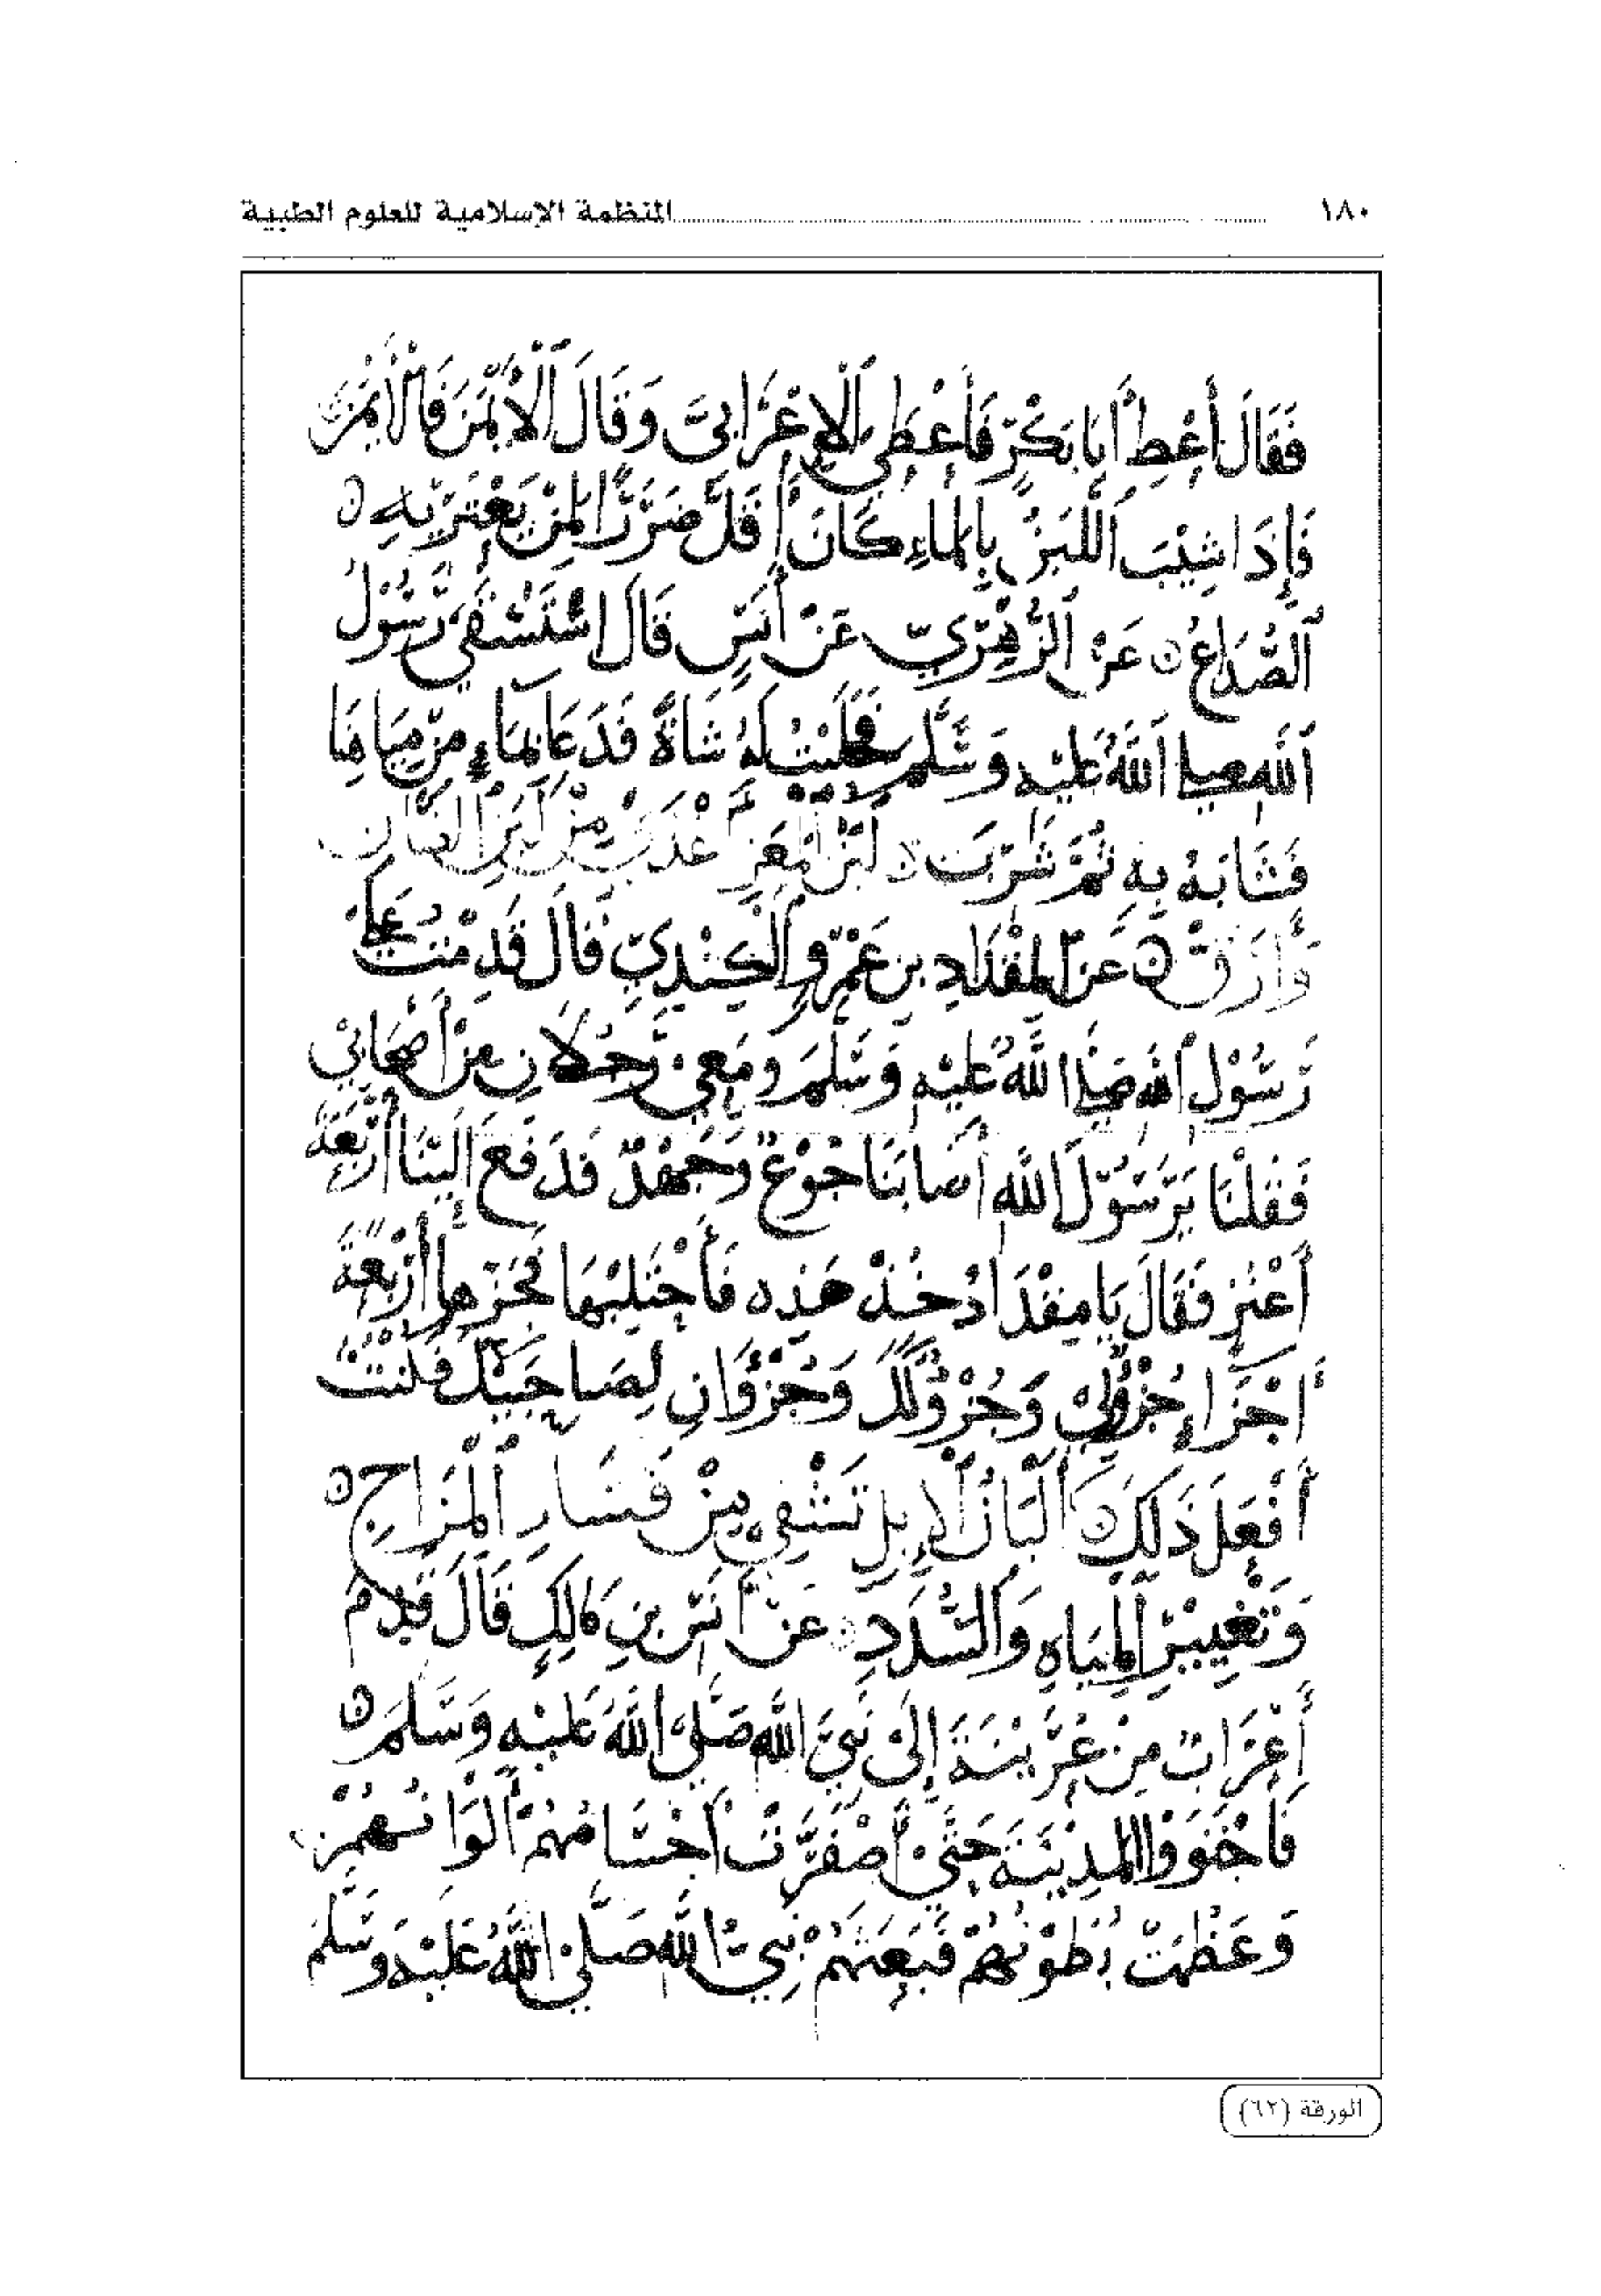 ١٨٠ المنظمة الإسلامية للعلوم الطبية
فَقَالَ أَعْطِ أَبَا بَكْرٍ فَأَعْطَى الأَعْرَابِيَّ وَقَالَ الْأَيْمَنَ فَالأَيْمَنَ
فَإِذَا شِيْبَ اللَّبَنُ بِالمَاءِ كَانَ أَقَلَّ ضَرَرًا لِمَنْ يَعْتَرِيْهِ
الصُّدَاعُ عَنِ الزُّهْرِيِّ عَنْ أَنَسٍ قَالَ اسْتَسْقَى رَسُوْلُ
اللهِ صلى اللهُ عَلَيْهِ وَسَلَّمَ فحلبت لَهُ شَاةً فَدَعَا بِمَاءٍ مِنْ مِيَاهِنَا
فَشَابَهُ بِهِ ثُمَّ شَرِبَ لَبَنُ الْمَعَزِ أَعْذَبُ مِنْ لَبَنِ الضَّأن
وَأَرَقُّ عَنِ المِقْدَادِ بنِ عَمْرٍو الْكِنْدِيِّ قَالَ قَدِمْتُ عَلَى
رَسُوْلِ اللهِ صَلَّى اللهُ عَلَيْهِ وَسَلَّمَ وَمَعِي رَجُلَانِ مِنْ أَصْحَابِي
فَقُلْنَا يَرَسُوْلَ اللهِ أَصَابَنَا جُوْعٌ وَجَهْدٌ فَدَفَعَ إِلَيْنَا أَرْبَعَةَ
أَعْنُزٍ فَقَالَ يَا مِقْدَادُ خُذْ هَذِهِ فَأَحْتَلِبْهَا فَجَزِّهَا أَرْبَعَةَ
أَجْزَاءٍ جُزْءٌ لِيْ وَجُزْءٌ لَكَ وَجُزْوَانِ لِصَاحِبَيْكَ فَكُنْتُ
أَفْعَلُ ذَلِكَ أَلْبَانُ الْإِبِلِ تَشْفِي مِنْ فَسَادِ الْمِزَاجِ
وَتَغْيِيْرِ الْمِيَاهِ وَالسُّدَدِ عَنْ أَنَسِ بنِ مَالِكٍ قَالَ قَدِمَ
أَعْرَابٌ مِنْ عُرَيْنَةَ إِلَى نَبِيِّ اللهِ صَلَّى اللهُ عَلَيْهِ وَسَلَّمَ
فَاجْتَوَوْا الْمَدِيْنَةَ حَتَّى أَصْفَرَّتْ أَجْسَامُهُمْ أَلْوَانُهُمْ
وَعَظُمَتْ بُطُوْنُهُمْ فَبَعَثَهُمْ نَبِيُّ اللهِ صَلَّى اللهُ عَلَيْهِ وَسَلَّمَ
الورقة (٦٢)